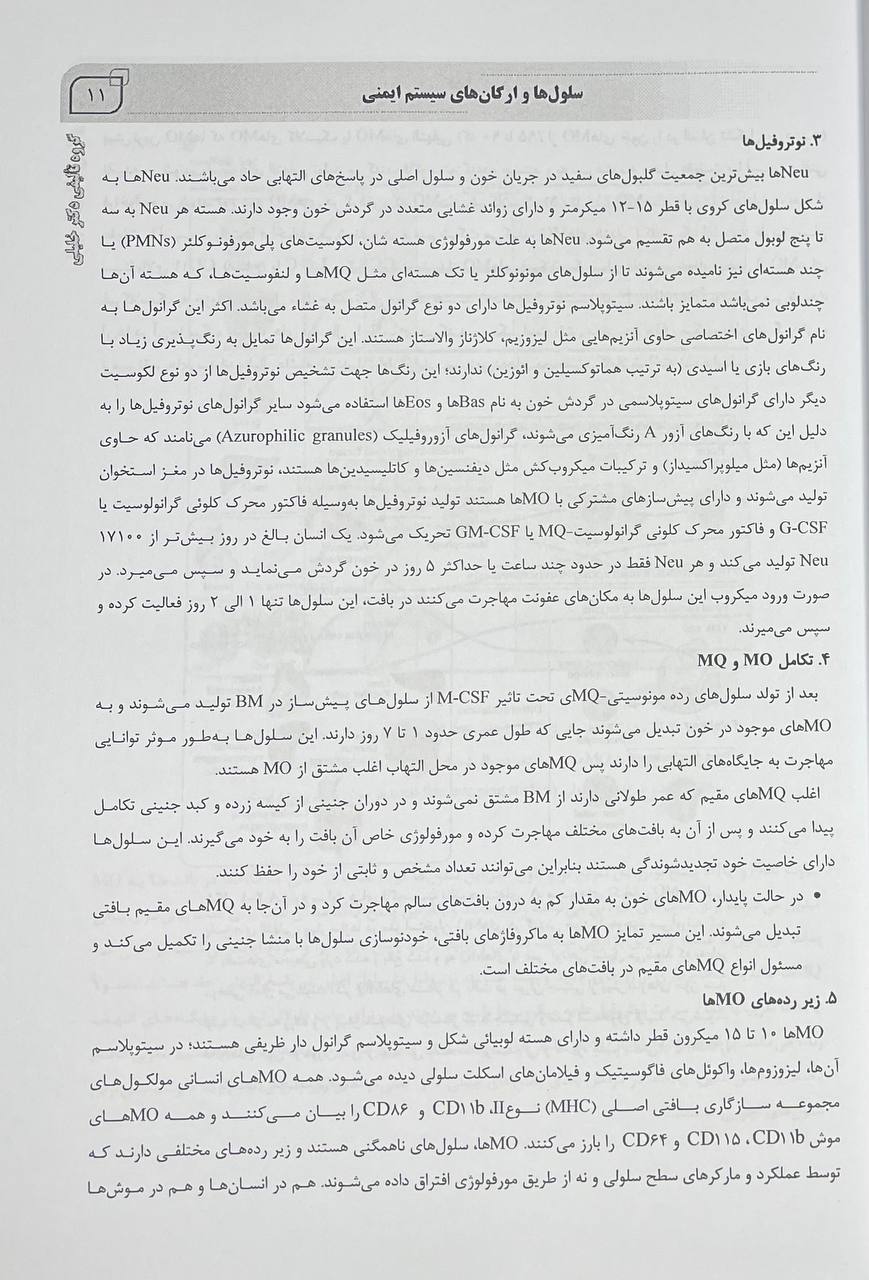 سلول‌ها و ارگان‌های سیستم ایمنی
۱۱
گروه تألیفی دکتر خلیلی
۳. نوتروفیل‌ها
Neuها بیش‌ترین جمعیت گلبول‌های سفید در جریان خون و سلول اصلی در پاسخ‌های التهابی حاد می‌باشند. Neuها به
شکل سلول‌های کروی با قطر ۱۵-۱۲ میکرمتر و دارای زوائد غشایی متعدد در گردش خون وجود دارند. هسته هر Neu به سه
تا پنج لوبول متصل به هم تقسیم می‌شود. Neuها به علت مورفولوژی هسته شان، لکوسیت‌های پلی‌مورفونوکلئر (PMNs) یا
چند هسته‌ای نیز نامیده می‌شوند تا از سلول‌های مونونوکلئر یا تک هسته‌ای مثل MQها و لنفوسیت‌ها، که هسته آن‌ها
چندلوبی نمی‌باشد متمایز باشند. سیتوپلاسم نوتروفیل‌ها دارای دو نوع گرانول متصل به غشاء می‌باشد. اکثر این گرانول‌ها به
نام گرانول‌های اختصاصی حاوی آنزیم‌هایی مثل لیزوزیم، کلاژناز والاستاز هستند. این گرانول‌ها تمایل به رنگ‌پذیری زیاد با
رنگ‌های بازی یا اسیدی (به ترتیب هماتوکسیلین و ائوزین) ندارند؛ این رنگ‌ها جهت تشخیص نوتروفیل‌ها از دو نوع لکوسیت
دیگر دارای گرانول‌های سیتوپلاسمی در گردش خون به نام Basها و Eosها استفاده می‌شود سایر گرانول‌های نوتروفیل‌ها را به
دلیل این که با رنگ‌های آزور A رنگ‌آمیزی می‌شوند، گرانول‌های آزوروفیلیک (Azurophilic granules) می‌نامند که حاوی
آنزیم‌ها (مثل میلوپراکسیداز) و ترکیبات میکروب‌کش مثل دیفنسین‌ها و کاتلیسیدین‌ها هستند، نوتروفیل‌ها در مغز استخوان
تولید می‌شوند و دارای پیش‌سازهای مشترکی با MOها هستند تولید نوتروفیل‌ها به‌وسیله فاکتور محرک کلوئی گرانولوسیت یا
G-CSF و فاکتور محرک کلونی گرانولوسیت-MQ یا GM-CSF تحریک می‌شود. یک انسان بالغ در روز بیش‌تر از ۱۷۱۰۰
Neu تولید می‌کند و هر Neu فقط در حدود چند ساعت یا حداکثر ۵ روز در خون گردش می‌نماید و سپس می‌میرد. در
صورت ورود میکروب این سلول‌ها به مکان‌های عفونت مهاجرت می‌کنند در بافت، این سلول‌ها تنها ۱ الی ۲ روز فعالیت کرده و
سپس می‌میرند.
۴. تکامل MO و MQ
بعد از تولد سلول‌های رده مونوسیتی-MQی تحت تاثیر M-CSF از سلول‌های پیش‌ساز در BM تولید می‌شوند و به
MOهای موجود در خون تبدیل می‌شوند جایی که طول عمری حدود ۱ تا ۷ روز دارند. این سلول‌ها به‌طور موثر توانایی
مهاجرت به جایگاه‌های التهابی را دارند پس MQهای موجود در محل التهاب اغلب مشتق از MO هستند.
اغلب MQهای مقیم که عمر طولانی دارند از BM مشتق نمی‌شوند و در دوران جنینی از کیسه زرده و کبد جنینی تکامل
پیدا می‌کنند و پس از آن به بافت‌های مختلف مهاجرت کرده و مورفولوژی خاص آن بافت را به خود می‌گیرند. این سلول‌ها
دارای خاصیت خود تجدیدشوندگی هستند بنابراین می‌توانند تعداد مشخص و ثابتی از خود را حفظ کنند.
• در حالت پایدار، MOهای خون به مقدار کم به درون بافت‌های سالم مهاجرت کرد و در آن‌جا به MQهای مقیم بافتی
تبدیل می‌شوند. این مسیر تمایز MOها به ماکروفاژهای بافتی، خودنوسازی سلول‌ها با منشا جنینی را تکمیل می‌کند و
مسئول انواع MQهای مقیم در بافت‌های مختلف است.
۵. زیر رده‌های MOها
MOها ۱۰ تا ۱۵ میکرون قطر داشته و دارای هسته لوبیائی شکل و سیتوپلاسم گرانول دار ظریفی هستند؛ در سیتوپلاسم
آن‌ها، لیزوزوم‌ها، واکوئل‌های فاگوسیتیک و فیلامان‌های اسکلت سلولی دیده می‌شود. همه MOهای انسانی مولکول‌های
مجموعه سازگاری بافتی اصلی (MHC) نوع‌II، CD۱۱b و CD۸۶ را بیان می‌کنند و همه MOهای
موش CD۱۱b، CD۱۱۵ و CD۶۴ را بارز می‌کنند. MOها، سلول‌های ناهمگنی هستند و زیر رده‌های مختلفی دارند که
توسط عملکرد و مارکرهای سطح سلولی و نه از طریق مورفولوژی افتراق داده می‌شوند. هم در انسان‌ها و هم در موش‌ها